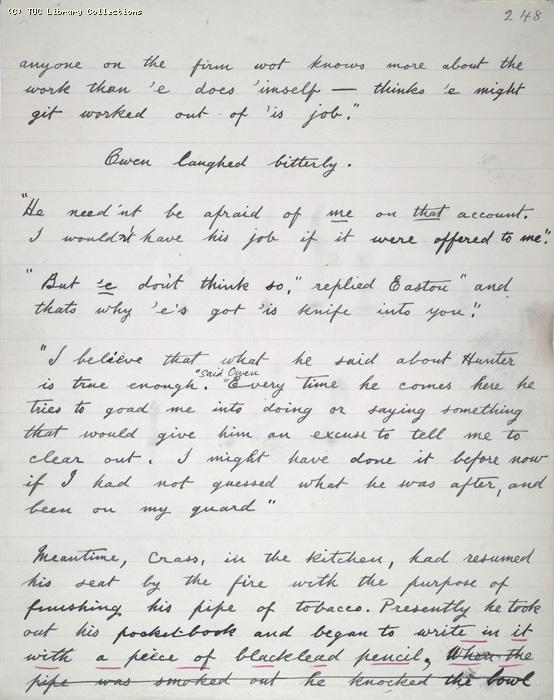 (C) TUC Library Collections
248
anyone on the firm wot knows more about the
work than 'e does 'imself — thinks 'e might
git worked out of 'is job."
Owen laughed bitterly.
"He need'nt be afraid of me on that account.
I wouldn't have his job if it were offered to me".
"But 'e don't think so," replied Easton "and
thats why 'e's got 'is knife into you".
"I believe that what he said about Hunter
is true enough." said Owen "Every time he comes here he
tries to goad me into doing or saying something
that would give him an excuse to tell me to
clear out. I might have done it before now
if I had not guessed what he was after, and
been on my guard"
Meantime, Crass, in the kitchen, had resumed
his seat by the fire with the purpose of
finishing his pipe of tobacco. Presently he took
out his pocket-book and began to write in it
with a peice of blacklead pencil, When the
pipe was smoked out he knocked the bowl